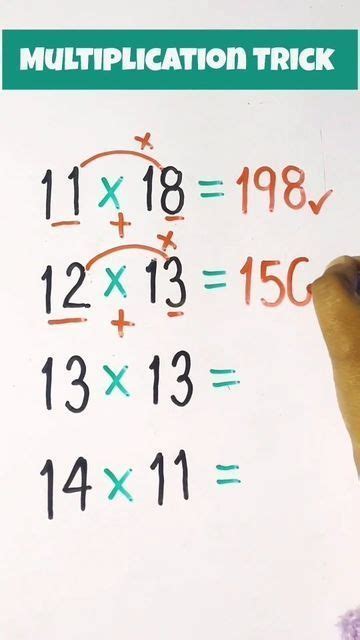 MULTIPLICATION TRICK
x
11 x 18 = 198 ✓
+
x
12 x 13 = 150
+
13 x 13 =
14 x 11 =